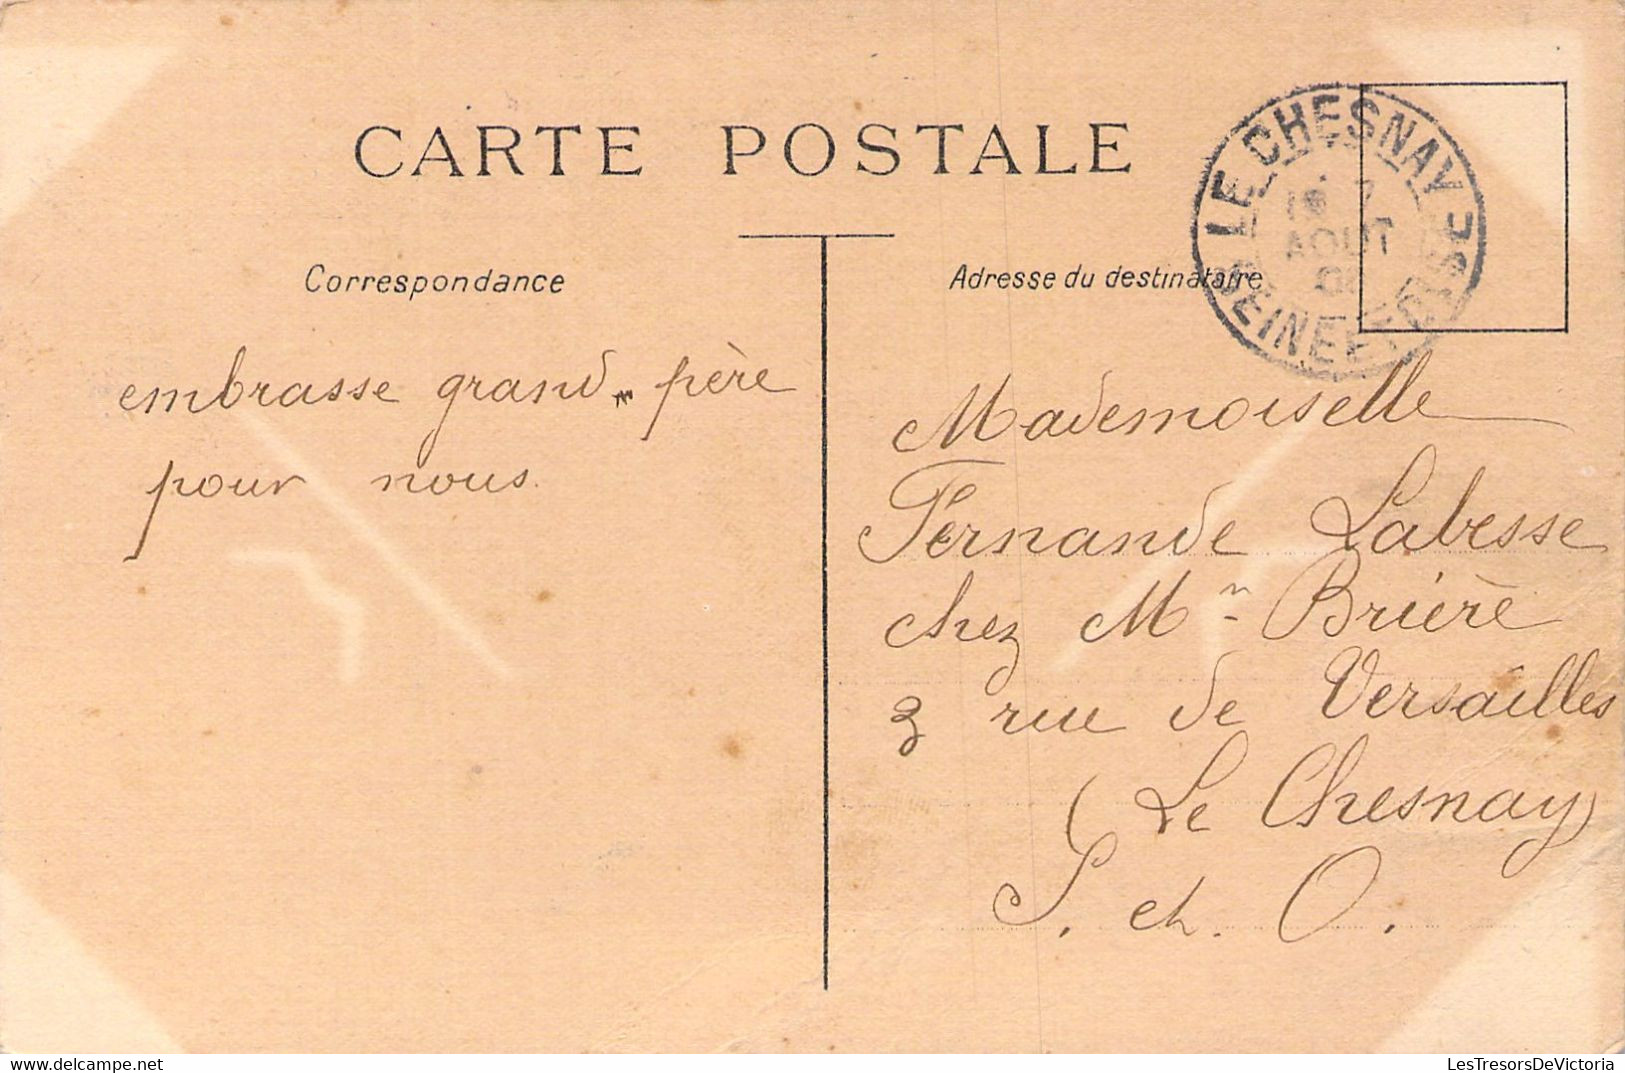 CARTE POSTALE
Correspondance
embrasse grand-père
pour nous.
Adresse du destinataire
LE CHESNAY
AOUT
SEINE ET OISE
Mademoiselle
Fernande Labesse
chez Mr Brière
3 rue de Versailles
(Le Chesnay)
S. et. O.
delcampe.net
LesTresorsDeVictoria